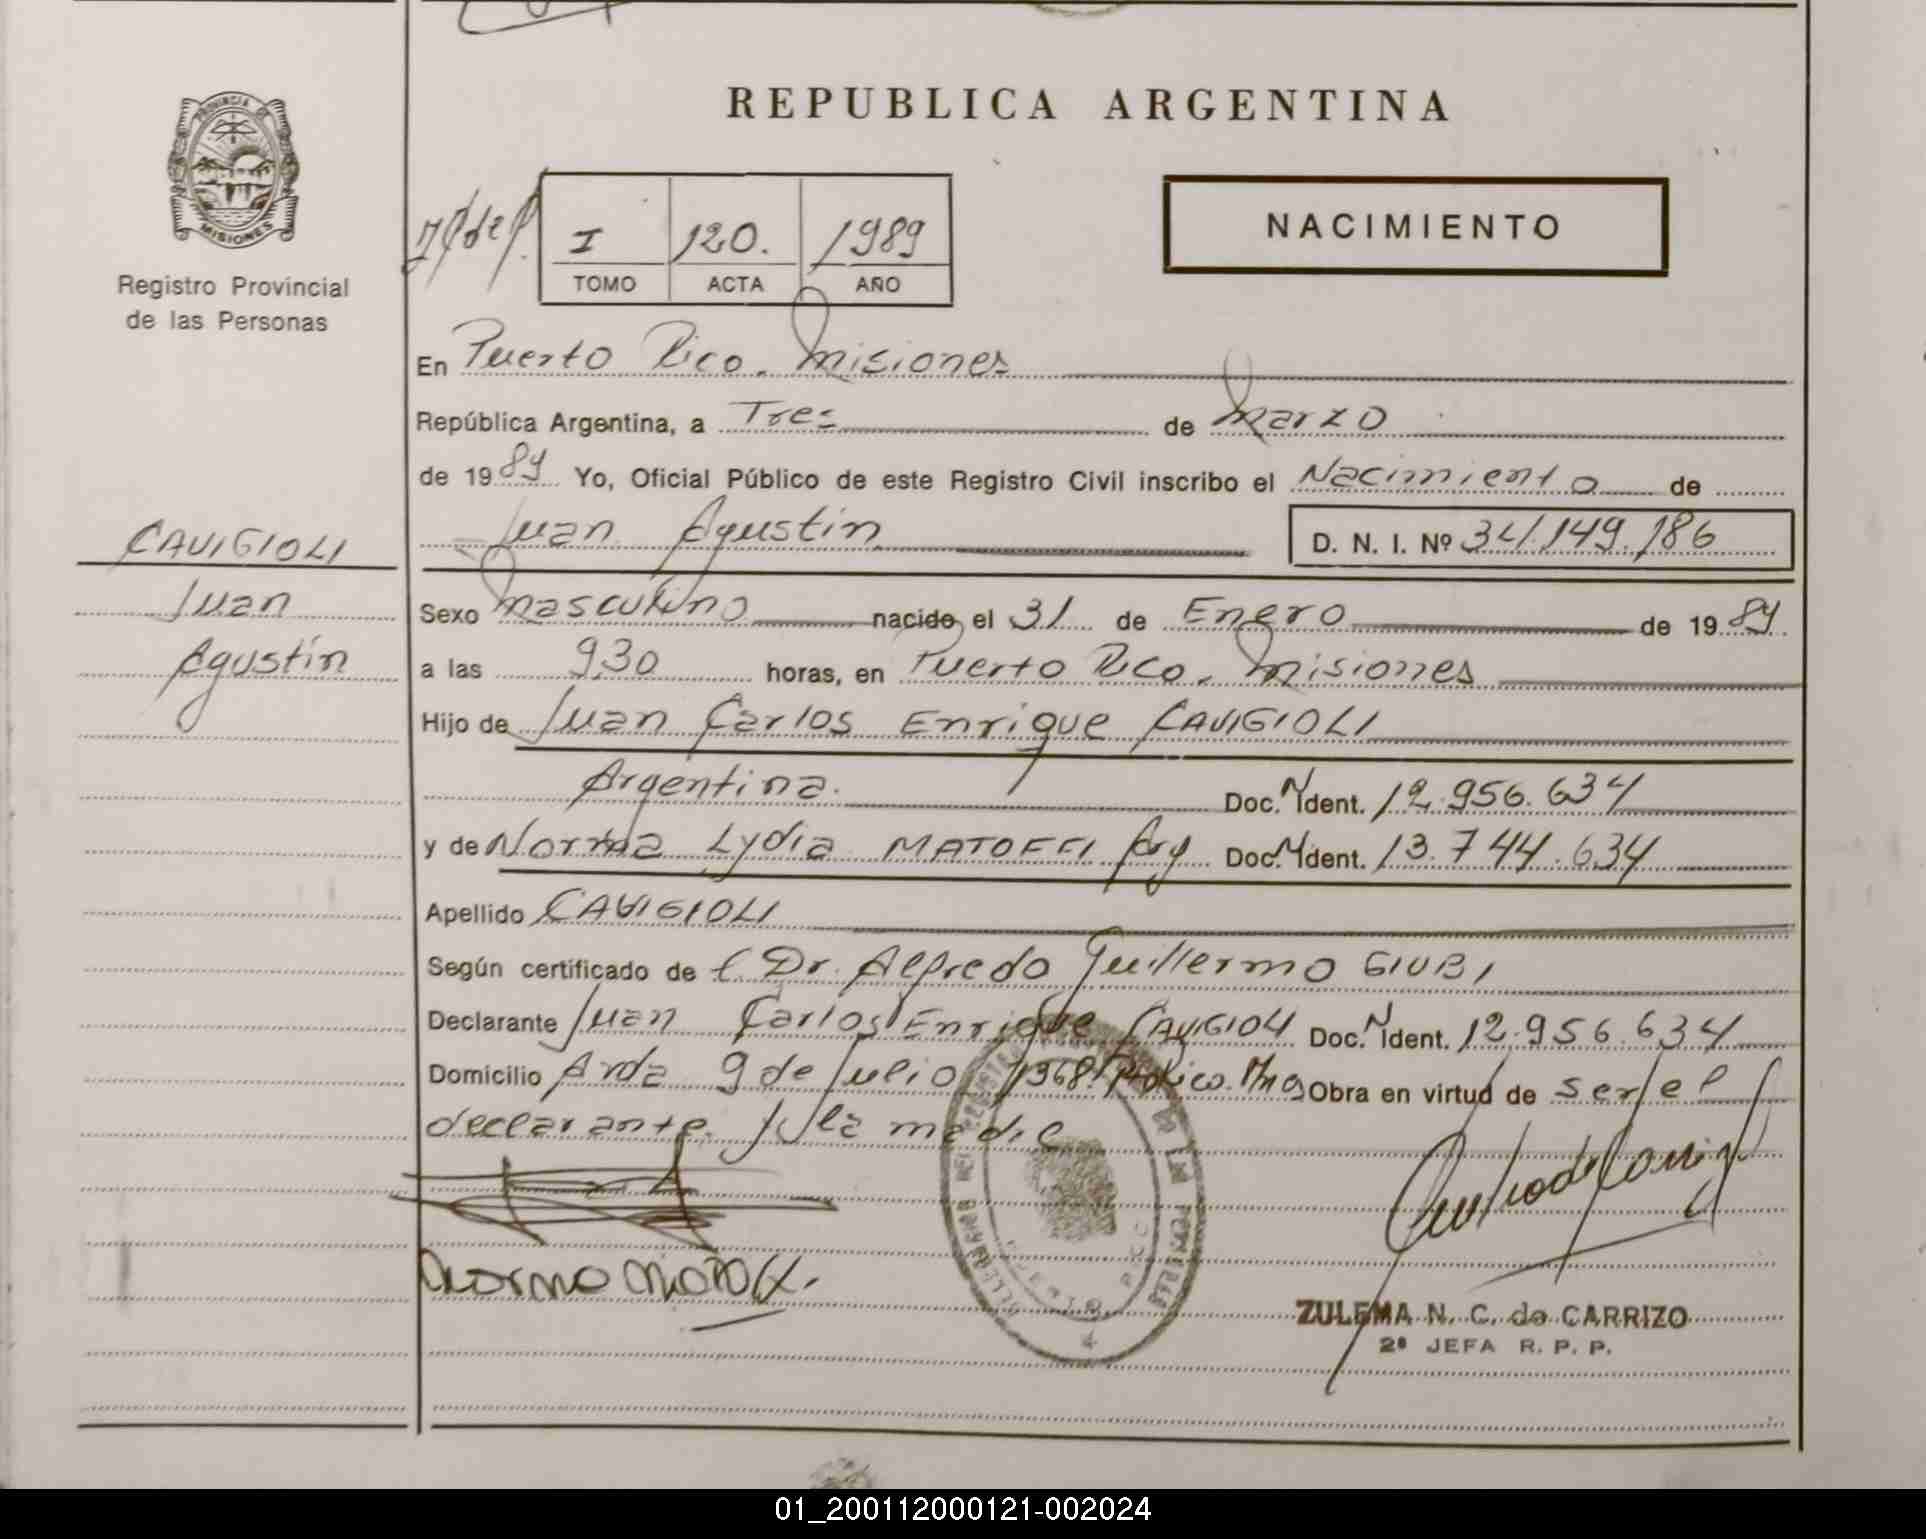 REPUBLICA ARGENTINA
PROVINCIA DE
MISIONES
Registro Provincial
de las Personas
I 120. 1989
TOMO ACTA AÑO
NACIMIENTO
En Puerto Rico. Misiones
República Argentina, a Tres de Marzo
de 1989 Yo, Oficial Público de este Registro Civil inscribo el Nacimiento de
Juan Agustín D. N. I. Nº 34.149.186
CAVIGIOLI
Juan
Agustín
Sexo Masculino nacido el 31 de Enero de 1989
a las 9,30 horas, en Puerto Rico. Misiones
Hijo de Juan Carlos Enrique CAVIGIOLI
Argentina. Doc. N Ident. 12.956.634
y de Norma Lydia MATOFFI Arg Doc. N Ident. 13.744.634
Apellido CAVIGIOLI
Según certificado de l Dr. Alfredo Guillermo GIUBI
Declarante Juan Carlos Enrique CAVIGIOLI Doc. N Ident. 12.956.634
Domicilio Avda 9 de Julio 1368 Obra en virtud de ser el
declarante y la madre
ZULEMA N. C. de CARRIZO
2ª JEFA R. P. P.
01_200112000121-002024